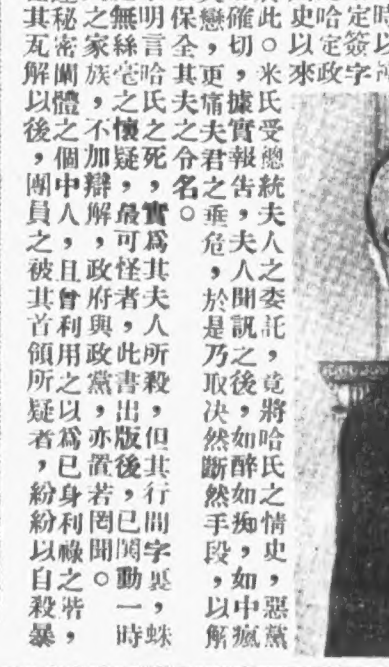 定簽字
哈定政
史以來
此。米氏受總統夫人之委託,竟將哈氏之情史,惡黨
確切,據實報告,夫人聞訊之後,如醉如痴,如中瘋
戀,更痛夫君之垂危,於是乃取决然斷然手段,以解
保全其夫之令名。
明言哈氏之死,實爲其夫人所殺,但其行間字裏,蛛
無絲毫之懷疑,最可怪者,此書出版後,已鬨動一時
之家族,不加辯解,政府與政黨,亦置若罔聞。
秘密團體之個中人,且曾利用之以爲已身利祿之階,
其瓦解以後,團員之被其首領所疑者,紛紛以自殺暴